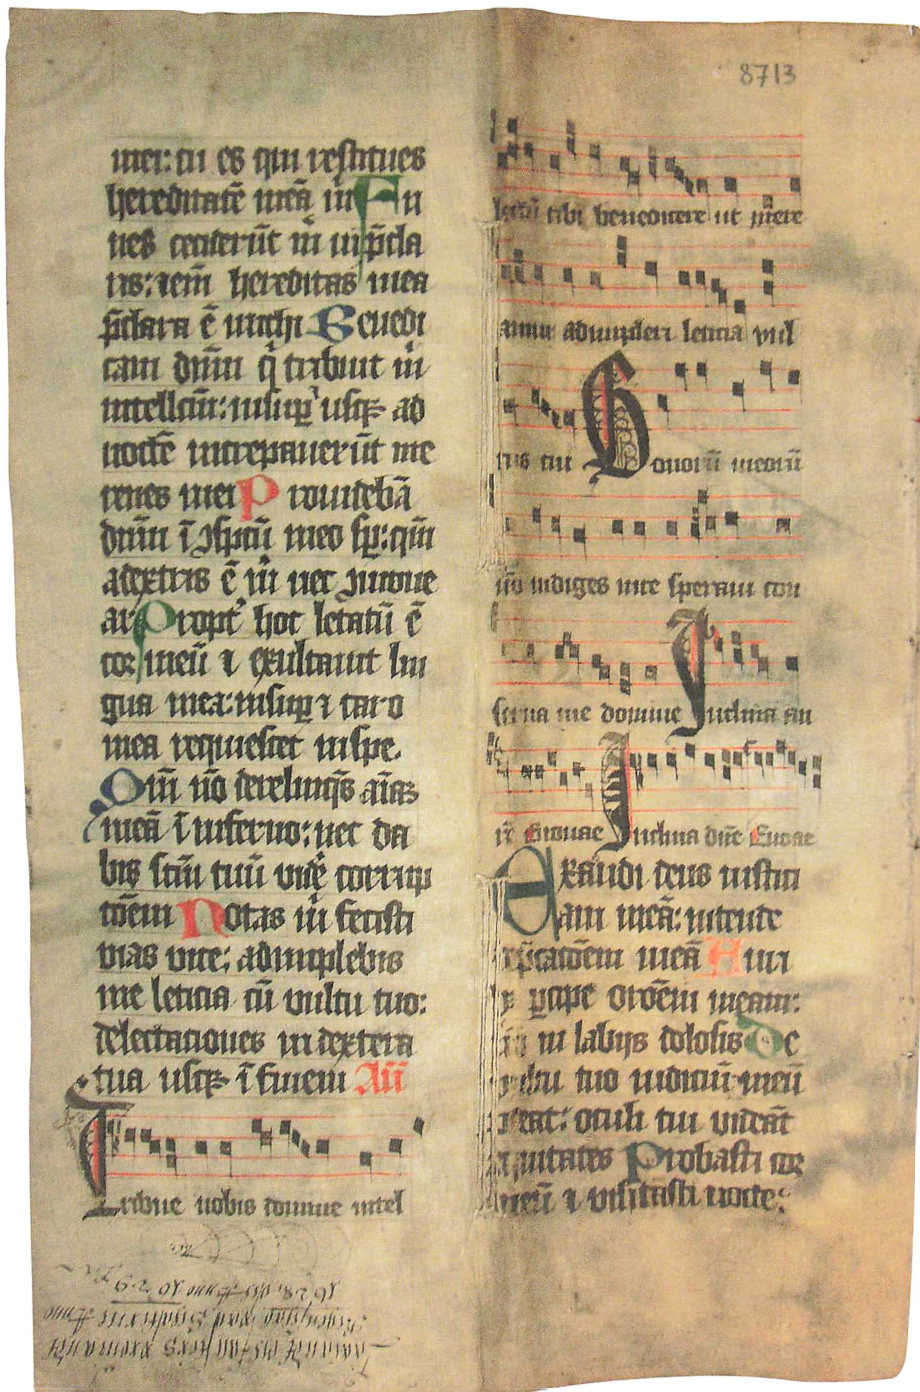 8713
mei: tu es qui restitues
hereditatē meā mͥ Fu
nes ceciderūt mͥ in p̄cla
ris: etem̄ hereditas mea
p̄clara ē michi Benedi
cam dn̄m qͥ tribuit mͥ
intellc̄m: insuꝑ ⁊ usqꝫ ad
noctē increpauerūt me
renes mei Prouidebā
dn̄m ī ꝯspctū meo sꝑ: qm̄
adextris ē mͥ ne cōmoue
ar Propt̉ hoc letatū ē
cor meū ⁊ exultauit lin
gua mea: insuꝑ ⁊ caro
mea requiescet in spe
Qm̄ nō derelinqͣ̄s aīaꝫ
meā ī inferno: nec da
bis scm̄ tuū vide͛ corrup
tōem Notas mͥ fecisti
vias vite: adimplebis
me leticia cū vultu tuo:
delectaciones in dextera
tua usqꝫ ī finem Añ
Tribue nobis domine intel
lectū tibi benedicere ut mere
amur adimpleri leticia vul
tus tui Bonorū meorū
nō indiges inte speraui con
serua me domine Inclina au
rē Euouae Inclina dn̄e Euouae
Exaudi deus iustici
am meā: intende
dep̄catōem meā Auri
bꝫ ꝑcipe orōem meam:
nō in labijs dolosis De
vultu tuo iudiciū meū
ꝓdeat: oculi tui videāt
equitates Probasti cor
meū ⁊ visitasti nocte: